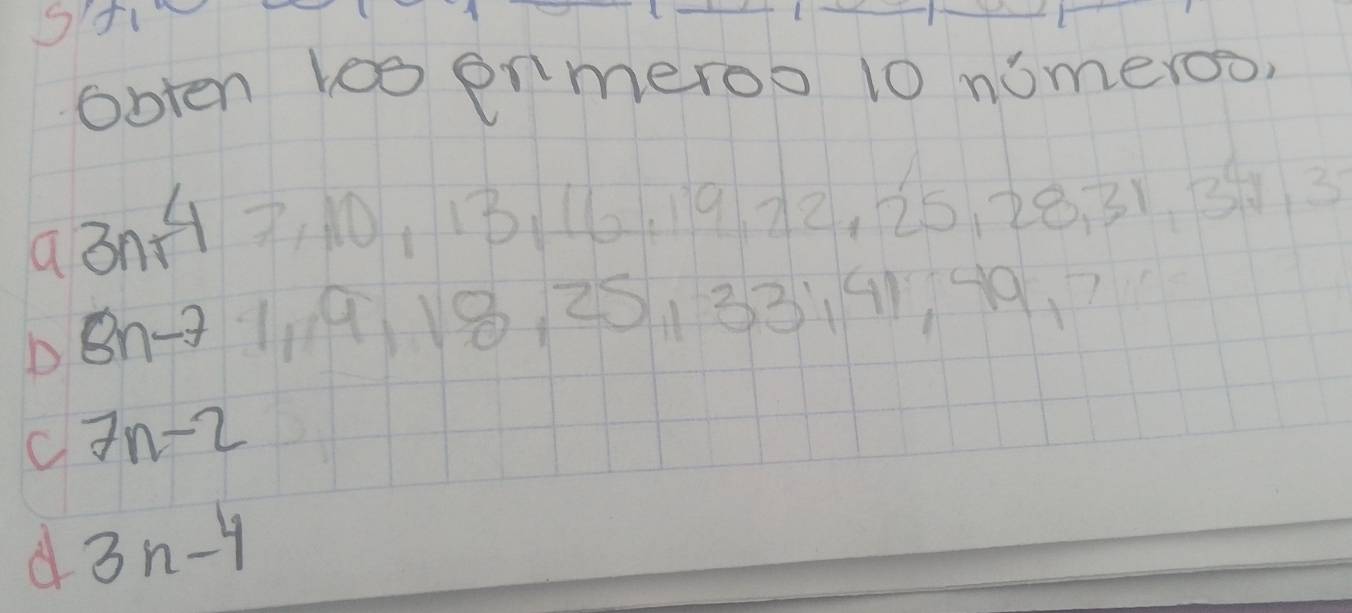 Obten los primeros 10 números,
a 3n+4 7, 10, 13, 16, 19, 22, 25, 28, 31, 34, 3
b 8n-7 1, 9, 18, 25, 33, 41, 49, 7
c 7n-2
d 3n-4